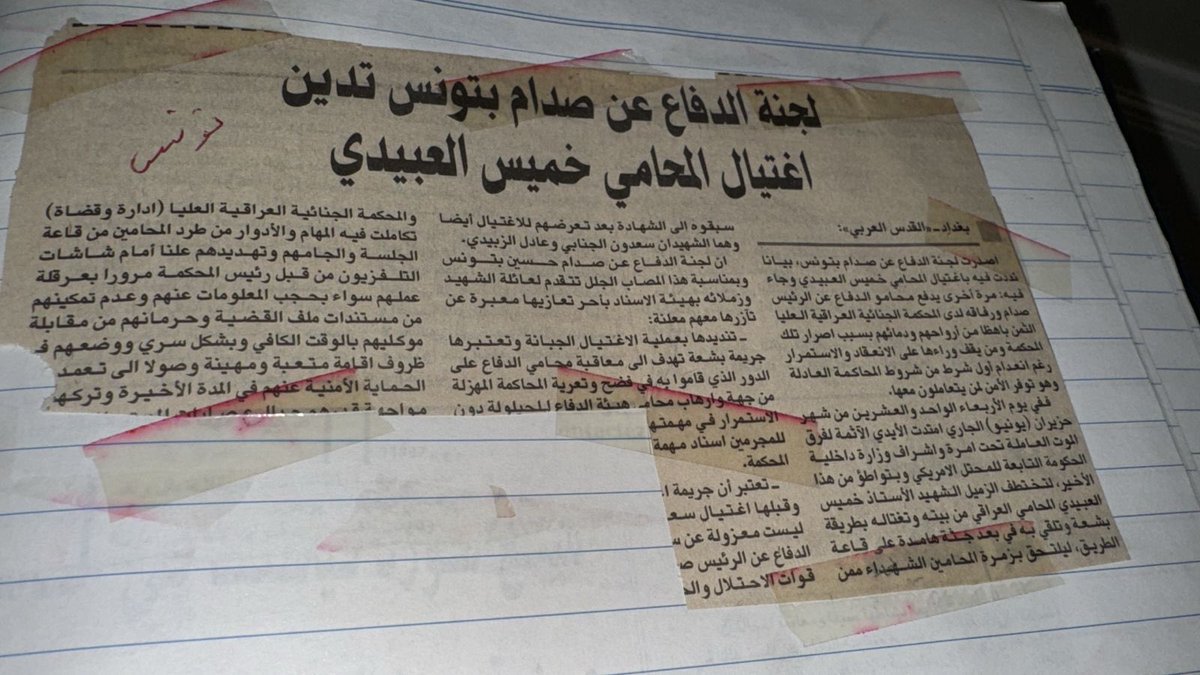 لجنة الدفاع عن صدام بتونس تدين
اغتيال المحامي خميس العبيدي
تونس
بغداد ـ «القدس العربي»:
اصدرت لجنة الدفاع عن صدام بتونس، بيانا
نددت فيه باغتيال المحامي خميس العبيدي وجاء
فيه: مرة أخرى يدفع محامو الدفاع عن الرئيس
صدام ورفاقه لدى المحكمة الجنائية العراقية العليا
الثمن باهظا من أرواحهم ودمائهم بسبب اصرار تلك
المحكمة ومن يقف وراءها على الانعقاد والاستمرار
رغم انعدام أول شرط من شروط المحاكمة العادلة
وهو توفر الأمن لمن يتعاملون معها.
ففي يوم الأربعاء الواحد والعشرين من شهر
حزيران (يونيو) الجاري امتدت الأيدي الآثمة لفرق
الموت العاملة تحت امرة واشراف وزارة داخلية
الحكومة التابعة للمحتل الامريكي وبتواطؤ من هذا
الأخير، لتختطف الزميل الشهيد الأستاذ خميس
العبيدي المحامي العراقي من بيته وتغتاله بطريقة
بشعة وتلقي به في بعد جثة هامدة على قاعة
الطريق، ليلتحق بزمرة المحامين الشهداء ممن
سبقوه الى الشهادة بعد تعرضهم للاغتيال أيضا
وهما الشهيدان سعدون الجنابي وعادل الزبيدي.
ان لجنة الدفاع عن صدام حسين بتونس
وبمناسبة هذا المصاب الجلل تتقدم لعائلة الشهيد
وزملائه بهيئة الاسناد بأحر تعازيها معبرة عن
تآزرها معهم معلنة:
ـ تنديدها بعملية الاغتيال الجبانة وتعتبرها
جريمة بشعة تهدف الى معاقبة محامي الدفاع على
الدور الذي قاموا به في فضح وتعرية المحاكمة المهزلة
من جهة وارهاب محامي هيئة الدفاع للحيلولة دون
الاستمرار في مهمتها
للمجرمين اسناد مهمة
المحكمة.
ـ تعتبر أن جريمة
وقبلها اغتيال سعـ
ليست معزولة عن
الدفاع عن الرئيس
قوات الاحتلال
والمحكمة الجنائية العراقية العليا (ادارة وقضاة)
تكاملت فيه المهام والأدوار من طرد المحامين من قاعة
الجلسة والجامهم وتهديدهم علنا أمام شاشات
التلفزيون من قبل رئيس المحكمة مرورا بعرقلة
عملهم سواء بحجب المعلومات عنهم وعدم تمكينهم
من مستندات ملف القضية وحرمانهم من مقابلة
موكليهم بالوقت الكافي وبشكل سري ووضعهم في
ظروف اقامة متعبة ومهينة وصولا الى تعمد
الحماية الأمنية عنهم في المدة الأخيرة وتركهم